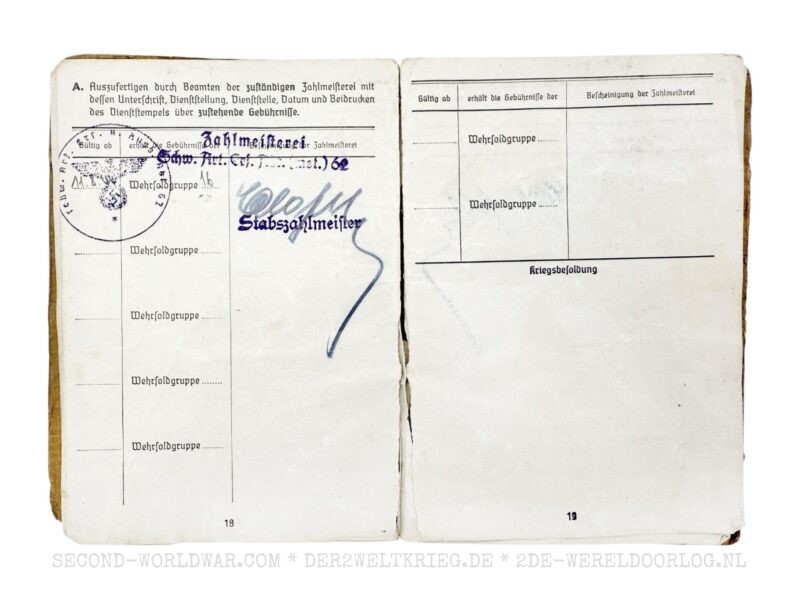 A. Auszufertigen durch Beamten der zuständigen Zahlmeisterei mit
dessen Unterschrift, Dienststellung, Dienststelle, Datum und Beidrucken
des Dienststempels über zustehende Gebührnisse.
Gültig ab erhält die Gebührnisse der Bescheinigung der Zahlmeisterei
Zahlmeisterei
Schw. Art. Ers. (mot.) 62
11.8. Wehrsoldgruppe 16
Stabszahlmeister
Wehrsoldgruppe ........
Wehrsoldgruppe ........
Wehrsoldgruppe ........
Wehrsoldgruppe ........
18
Gültig ab erhält die Gebührnisse der Bescheinigung der Zahlmeisterei
Wehrsoldgruppe ........
Wehrsoldgruppe ........
Kriegsbesoldung
19
SECOND-WORLDWAR.COM * DER2WELTKRIEG.DE * 2DE-WERELDOORLOG.NL